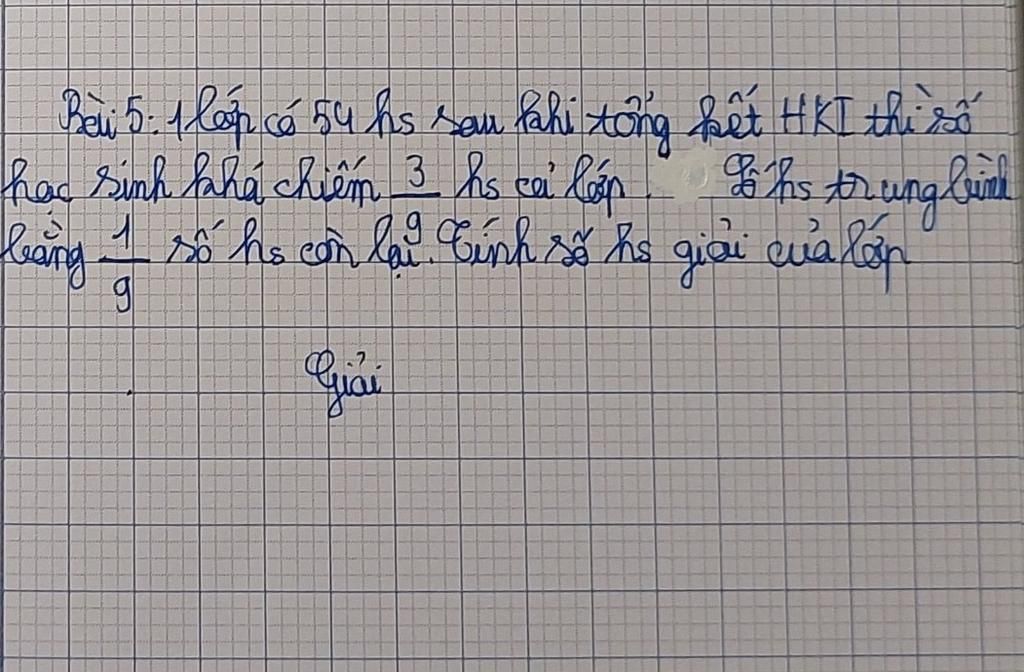 Bài 5: 1 lớp có 54 hs sau khi tổng kết HKI thì số
học sinh khá chiếm 3/9 hs cả lớp. Số hs trung bình
bằng 1/9 số hs còn lại. Tính số hs giỏi của lớp
Giải